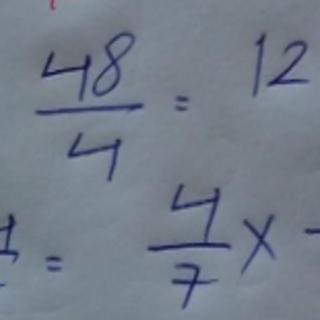 48/4 = 12
= 4/7 x